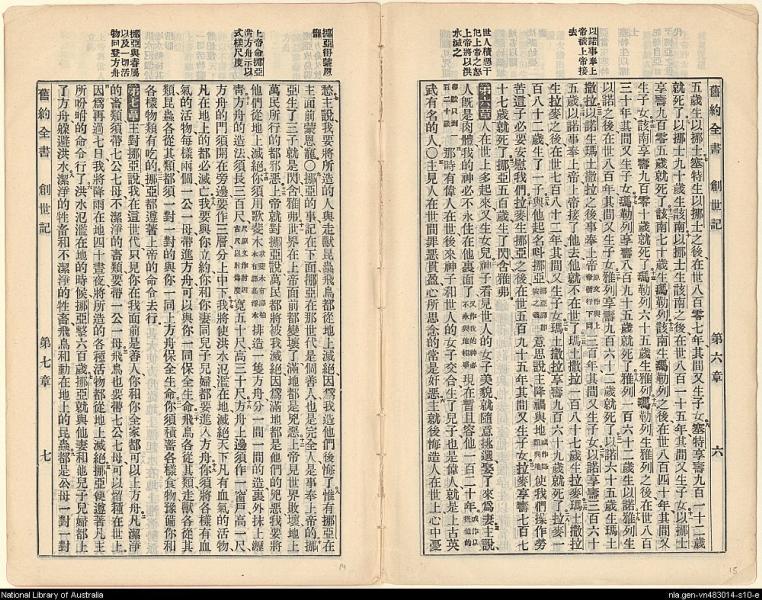 舊約全書 創世記 第六章 六
五歲生以挪士塞特生以挪士之後在世八百零七年其間又生子女塞特享壽九百一十二歲
就死了以挪士九十歲生該南以挪士生該南之後在世八百一十五年其間又生子女以挪士
享壽九百零五歲就死了該南七十歲生瑪勒列該南生瑪勒列之後在世八百四十年其間又
生子女該南享壽九百零十歲就死了瑪勒列六十五歲生雅列瑪勒列生雅列之後在世八百
三十年其間又生子女瑪勒列享壽八百九十五歲就死了雅列一百六十二歲生以諾雅列生
以諾之後在世八百年其間又生子女雅列享壽九百六十二歲就死了以諾六十五歲生瑪土
撒拉以諾生瑪土撒拉之後事奉上帝三百年其間又生子女以諾享壽三百六十
五歲以諾事奉上帝上帝接了他去他就不在世了瑪土撒拉一百八十七歲生拉麥瑪土撒拉
生拉麥之後在世七百八十二年其間又生子女瑪土撒拉享壽九百六十九歲就死了拉麥一
百八十二歲生了一子與他起名叫挪亞意思說主降禍與地使我們操作勞
苦這子必要安慰我們拉麥生挪亞之後在世五百九十五年其間又生子女拉麥享壽七百七
十七歲就死了挪亞五百歲生了閃含雅弗
第六章 人在世上多起來又生女兒神子看見世人的女子美貌就隨意挑選娶了來爲妻主說
人旣是肉體我的神必不永住在他裏面了現在暫且容他一百二十年
那時有偉人在世後來神子和世人的女子交合生了兒子也是偉人就是上古英
武有名的人〇主見人在世間罪惡貫盈心所思念的常是奸惡主就後悔造人在世上心中憂
以諾事奉上帝被上帝接去
世人積惡干犯上帝之怒上帝將以洪水滅之
愁主說我要將所造的人與走獸昆蟲飛鳥都從地上滅絕因爲我造他們後悔了惟有挪亞在
主面前蒙恩寵〇挪亞的事記在下面挪亞在那世代是個善人也是完全人是事奉上帝的挪
亞生了三子就是閃含雅弗世界在上帝面前都變壞了滿地都是兇惡上帝見世界敗壞地上
萬民所行的都邪惡上帝就對挪亞說萬民都將被我滅絕因爲滿地都是他們的兇惡我要將
他們從地上滅絕你須用歌斐木排造一隻方舟分一間一間的造裏外抹上䌉
靑方舟的造法須長三百尺寬五十尺高三十尺方舟上邊須作一窗戶高一尺
方舟的門須開在旁邊要作三層分上中下我將使洪水氾濫在地滅絕天下凡有血氣的活物
凡在地上的都必滅亡我要與你立約你和你妻同兒子兒婦都要進入方舟你須將各樣有血
氣的活物每樣兩個一公一母帶進方舟可以與你一同保全生命飛鳥各從其類走獸各從其
類昆蟲各從其類都須一對一對的與你一同上方舟保全生命你須積蓄各樣食物豫備你和
各樣物類有吃的挪亞都遵著上帝的命令去行
第七章 主對挪亞說我在這世代只見你在我面前是善人你和你全家都可以上方舟凡潔淨
的畜類須帶七公七母不潔淨的畜類要帶一公一母飛鳥也要帶七公七母可以留種在世上
因爲再過七日我將降雨在地四十晝夜將所造的各種活物都從地上滅絕挪亞便遵著凡主
所吩咐的命令行了洪水氾濫在地的時候挪亞整六百歲挪亞就與他妻和他兒子兒婦都上
了方舟躱避洪水潔淨的牲畜和不潔淨的牲畜飛鳥和動在地上的昆蟲都是公母一對一對
舊約全書 創世記 第七章 七
挪亞得蒙恩寵
上帝命挪亞造方舟示以式樣尺度
挪亞與眷屬以及一切活物同登方舟
14
15
National Library of Australia
nla.gen-vn483014-s10-e